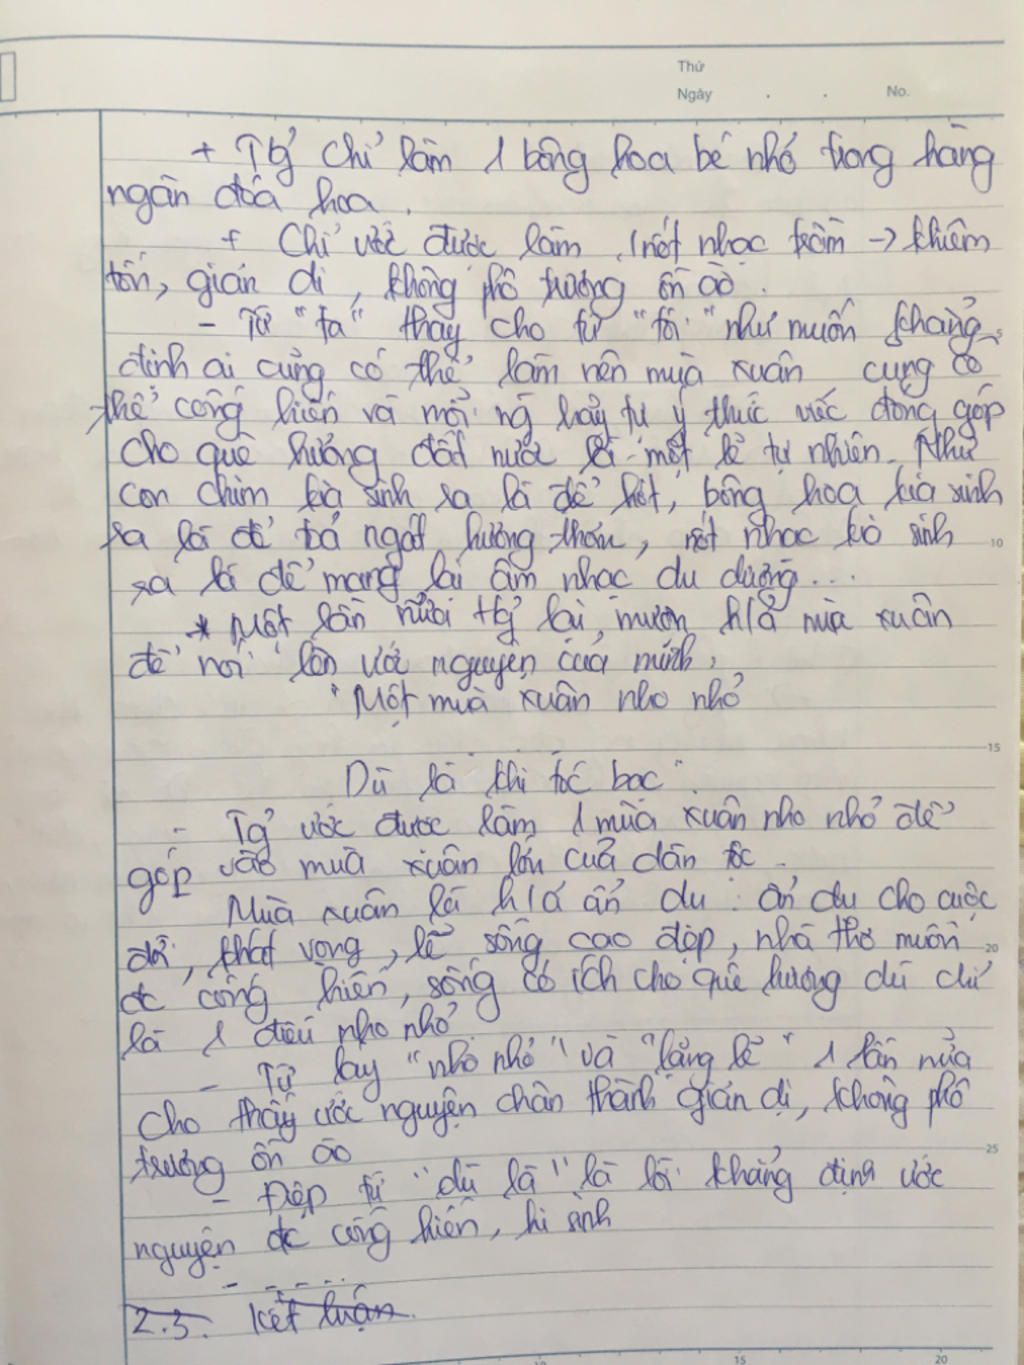 Thứ
Ngày . . No.
+ Tg' chỉ làm 1 bông hoa bé nhỏ trong hàng
ngàn đóa hoa.
+ Chỉ ước được làm 1 nốt nhạc trầm → khiêm
tốn, giản dị, không phô trương ồn ào.
- Từ "ta" thay cho từ "tôi" như muốn khẳng
định ai cũng có thể làm nên mùa xuân cũng có
thể cống hiến và mỗi ng hãy tự ý thức việc đóng góp
cho quê hương đất nước là một lẽ tự nhiên. Như
con chim kia sinh ra là để hót, bông hoa kia sinh
ra là để toả ngát hương thơm, nốt nhạc kia sinh
ra là để mang lại âm nhạc du dương...
* Một lần nữa tg' lại mượn h/ả mùa xuân
để nói lên ước nguyện của mình,
"Một mùa xuân nho nhỏ
15
Dù là khi tóc bạc".
- Tg' ước được làm 1 mùa xuân nho nhỏ để
góp vào mùa xuân lớn của dân tộc.
Mùa xuân là h/ả ẩn dụ: ẩn dụ cho cuộc
đời, khát vọng, lẽ sống cao đẹp, nhà thơ muốn 20
đc cống hiến, sống có ích cho quê hương dù chỉ
là 1 điều nho nhỏ
- Từ láy "nho nhỏ" và "lặng lẽ" 1 lần nữa
cho thấy ước nguyện chân thành giản dị, không phô
trương ồn ào 25
- Điệp từ "dù là" là lời khẳng định ước
nguyện đc cống hiến, hi sinh
- - - - ...
2.3. Kết luận.
10 15 20